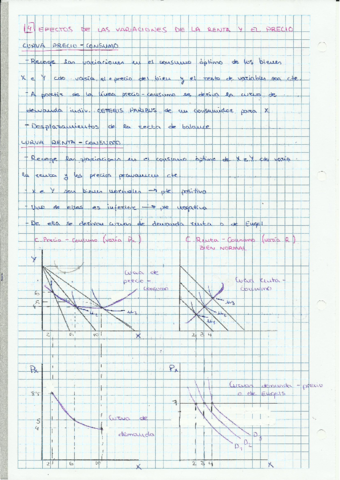 4 EFECTOS DE LAS VARIACIONES DE LA RENTA Y EL PRECIO
CURVA PRECIO - CONSUMO
- Recoge las variaciones en el consumo óptimo de los bienes
X e Y cdo varía el precio del bien y el resto de variables son cte
- A partir de la curva precio-consumo se deriva la curva de
demanda indiv. CETERIS PARIBUS de un consumidor para X
- Desplazamientos de la recta de balance
CURVA RENTA - CONSUMO
- Recoge las variaciones en el consumo óptimo de X e Y cdo varía
la renta y los precios permanecen cte
- X e Y son bienes normales → pte positiva
- Uno de ellos es inferior → pte negativa
- De ella se derivan curvas de demanda renta o de Engel
C. Precio - Consumo (varía Px) C. Renta - Consumo (varía R)
BIEN NORMAL
Y
Curva de
precio -
consumo
Curva renta -
consumo
X
Px Px
Curva de
demanda
Curvas demanda -
o de Engels
2 3 4
X X